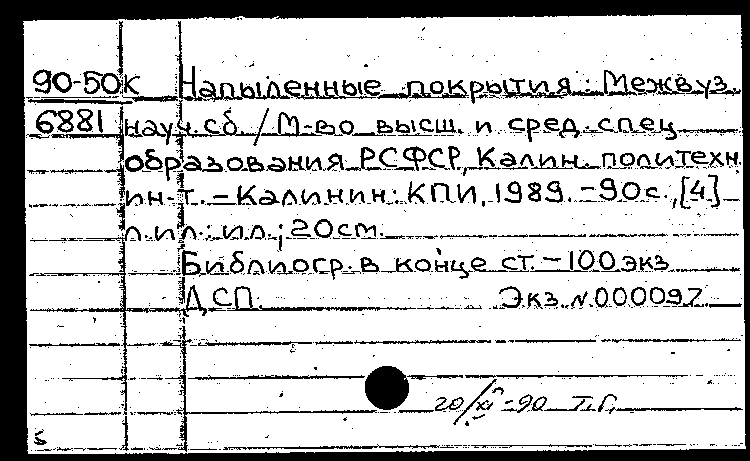 90-50к Напыленные покрытия: Межвуз.
6881 науч. сб. / М-во высш. и сред. спец.
образования РСФСР, Калин. политехн.
ин-т. – Калинин: КПИ, 1989. – 90 с., [4]
л. ил.: ил.; 20 см.
Библиогр. в конце ст. – 100 экз.
ДСП. Экз. N 000097
20/XI-90 Т.Г.
5